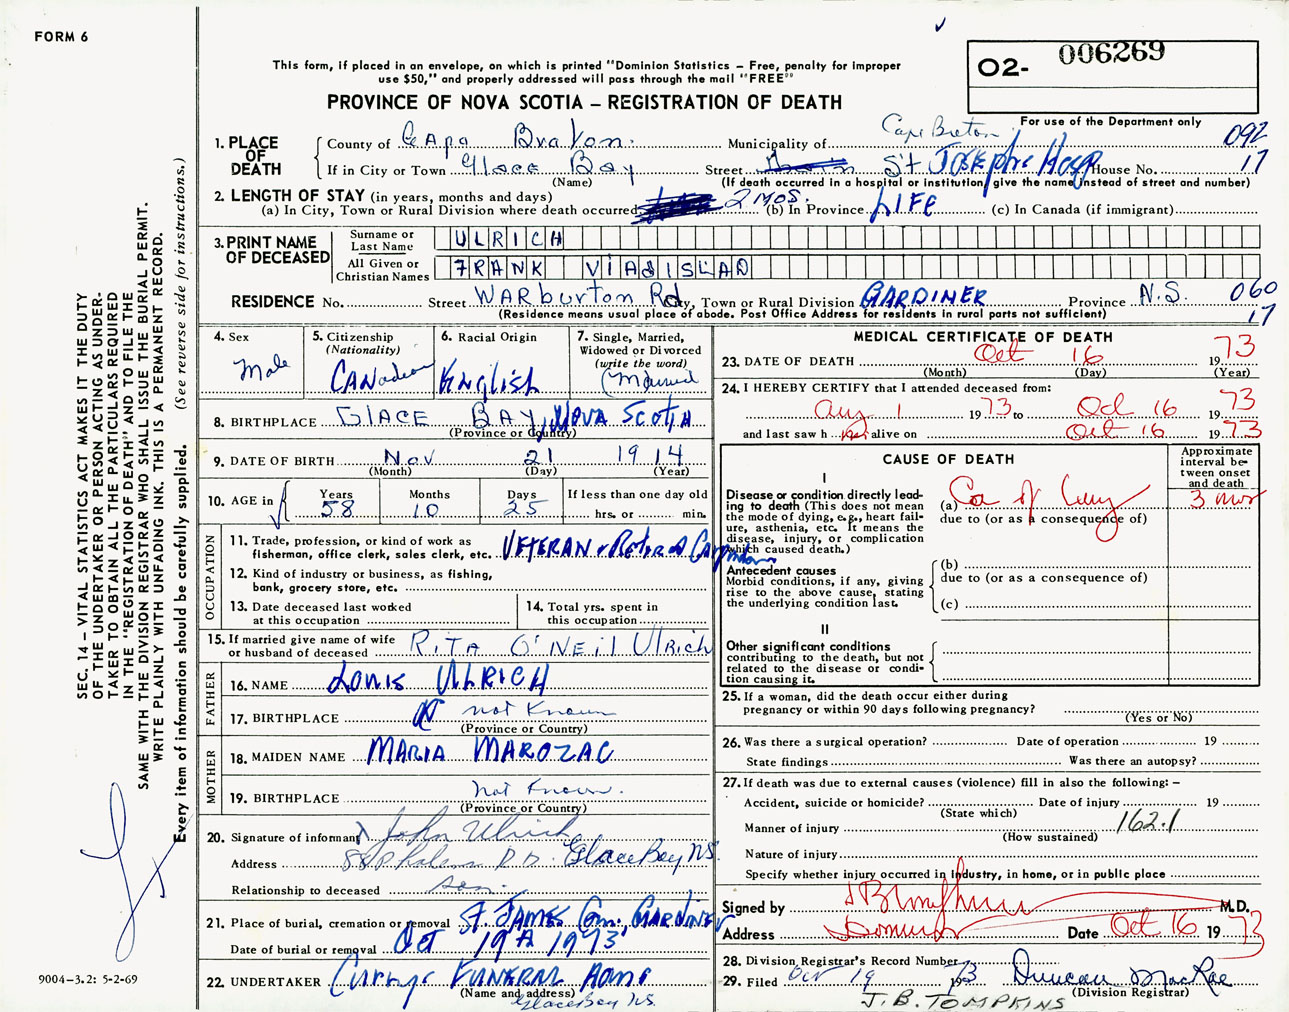 FORM 6
O2- 006269
This form, if placed in an envelope, on which is printed "Dominion Statistics – Free, penalty for improper
use $50," and properly addressed will pass through the mail "FREE"
PROVINCE OF NOVA SCOTIA – REGISTRATION OF DEATH
For use of the Department only
092
17
1. PLACE OF DEATH
County of Cape Breton. Municipality of Cape Breton
If in City or Town Glace Bay Street St Josephs Hosp House No.
(Name) (If death occurred in a hospital or institution, give the name instead of street and number)
2. LENGTH OF STAY (in years, months and days)
(a) In City, Town or Rural Division where death occurred 2 MOS. (b) In Province LIFE (c) In Canada (if immigrant)
3. PRINT NAME OF DECEASED
Surname or Last Name ULRICH
All Given or Christian Names FRANK VIADISLAD
RESIDENCE No. Street WARburton Rd City, Town or Rural Division GARDINER Province N.S. 060
(Residence means usual place of abode. Post Office Address for residents in rural parts not sufficient) 17
4. Sex
Male
5. Citizenship
(Nationality)
CANadian
6. Racial Origin
English
7. Single, Married,
Widowed or Divorced
(write the word)
(Married
8. BIRTHPLACE GLACE BAY, NOVA SCOTIA
(Province or Country)
9. DATE OF BIRTH Nov 21 1914
(Month) (Day) (Year)
10. AGE in
Years 58
Months 10
Days 25
If less than one day old
hrs. or min.
OCCUPATION
11. Trade, profession, or kind of work as
fisherman, office clerk, sales clerk, etc. VETERAN & Retired Carpenter
12. Kind of industry or business, as fishing,
bank, grocery store, etc.
13. Date deceased last worked
at this occupation
14. Total yrs. spent in
this occupation
15. If married give name of wife
or husband of deceased RITA O'NEIL Ulrich
FATHER
16. NAME Louis ULRICH
17. BIRTHPLACE not Known
(Province or Country)
MOTHER
18. MAIDEN NAME MARIA MAROZAC
19. BIRTHPLACE not Known.
(Province or Country)
20. Signature of informant John Ulrich
Address Glace Bay NS.
Relationship to deceased son.
21. Place of burial, cremation or removal St. JAMES Cem, GARDINER
Date of burial or removal Oct 19th 1973
22. UNDERTAKER Currys FUNERAL Home
(Name and address)
Glace Bay N.S.
MEDICAL CERTIFICATE OF DEATH
23. DATE OF DEATH Oct 16 1973
(Month) (Day) (Year)
24. I HEREBY CERTIFY that I attended deceased from:
Aug 1 1973 to Oct 16 1973
and last saw him alive on Oct 16 1973
CAUSE OF DEATH
Approximate interval between onset and death
I
Disease or condition directly leading to death (This does not mean the mode of dying, e.g., heart failure, asthenia, etc. It means the disease, injury, or complication which caused death.)
(a) Ca of lung 3 mos
due to (or as a consequence of)
Antecedent causes
Morbid conditions, if any, giving rise to the above cause, stating the underlying condition last.
(b)
due to (or as a consequence of)
(c)
II
Other significant conditions
contributing to the death, but not related to the disease or condition causing it.
25. If a woman, did the death occur either during
pregnancy or within 90 days following pregnancy?
(Yes or No)
26. Was there a surgical operation? Date of operation 19
State findings Was there an autopsy?
27. If death was due to external causes (violence) fill in also the following: –
Accident, suicide or homicide? Date of injury 19
(State which)
Manner of injury 162.1
(How sustained)
Nature of injury
Specify whether injury occurred in industry, in home, or in public place
Signed by M.D.
Address Dominion Date Oct 16 1973
28. Division Registrar's Record Number
29. Filed Oct 19 1973 Duncan MacRae
(Division Registrar)
J.B. TOMPKINS
SEC. 14 – VITAL STATISTICS ACT MAKES IT THE DUTY
OF THE UNDERTAKER OR PERSON ACTING AS UNDER-
TAKER TO OBTAIN ALL THE PARTICULARS REQUIRED
IN THE "REGISTRATION OF DEATH" AND TO FILE THE
SAME WITH THE DIVISION REGISTRAR WHO SHALL ISSUE THE BURIAL PERMIT.
WRITE PLAINLY WITH UNFADING INK. THIS IS A PERMANENT RECORD.
Every item of information should be carefully supplied. (See reverse side for instructions.)
9004-3.2: 5-2-69